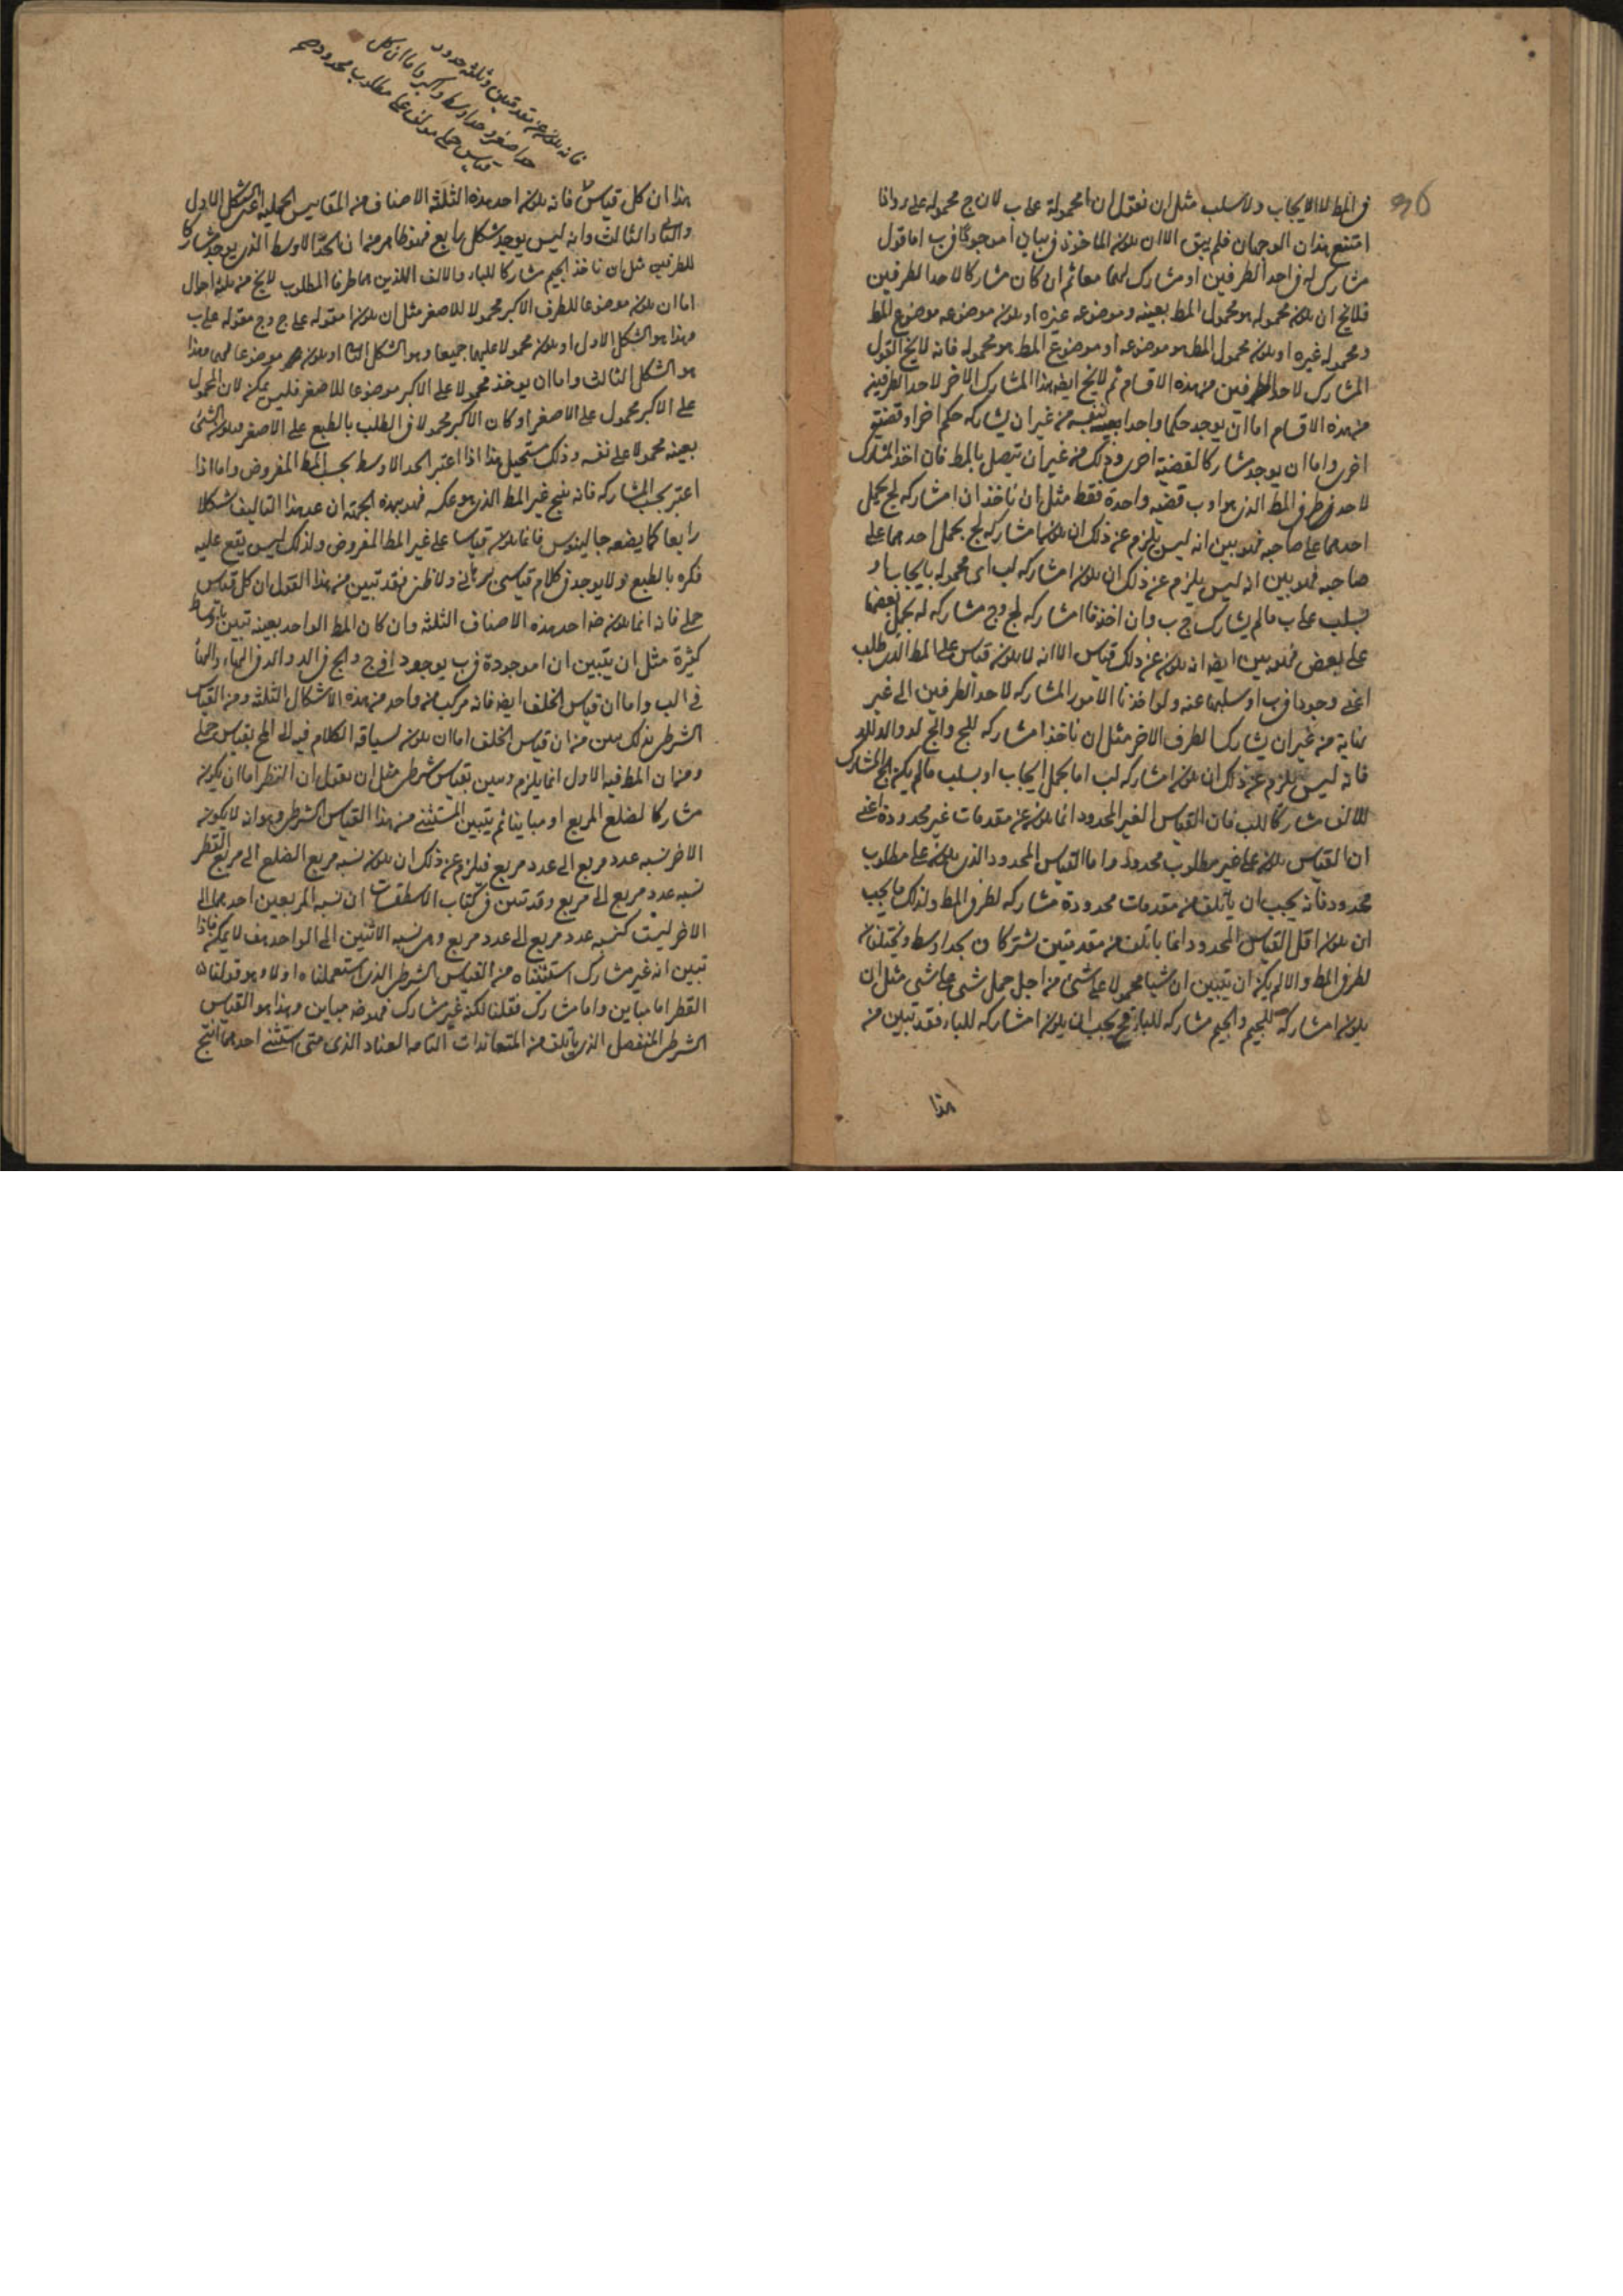 في المط لا الايجاب ولا سلب مثل ان نقول ان ا محمولة على ب لان ج محمولة على د واذا
امتنع هذان الوجهان فلم يبق الا ان يكون الماخوذ في بيان ا موجودا في ب اما قول
مشارك له في احد الطرفين او مشارك لهما معا ثم ان كان مشاركا لاحد الطرفين
فلا يخ ان يكون محموله هو محمول المط بعينه وموضوعه غيره او يكون موضوعه موضوع المط
ومحموله غيره او يكون محمول المط هو موضوعه او موضوع المط هو محموله فانه لا يخ القول
المشارك لاحد الطرفين من هذه الاقسام ثم لا يخ ايضا هذا المشارك الاخر لاحد الطرفين
من هذه الاقسام اما ان يوجد حكما واحدا بعينه من غير ان يشاركه حكم اخر او قضية
اخرى واما ان يوجد مشاركا لقضية اخرى وذلك من غير ان تتصل بالمط فان اخذ المشارك
لاحد طرفي المط الذي هو ا و ب قضية واحدة فقط مثل ان ناخذ ان ا مشاركه لج بحمل
احدهما على صاحبه فهو بين انه ليس يلزم عن ذلك ان يكون ا مشاركه لج بحمل احدهما على
صاحبه فهو بين انه ليس يلزم عن ذلك ان يكون ا مشاركه لب اي محموله بايجاب او
سلب على ب ما لم يشارك ج ب وان اخذنا ا مشاركه لج وج مشاركه له بحمل بعضها
على بعض فهو بين ايضا انه يكون عن ذلك قياس الا انه لا يكون قياس على المط الذي طلب
اعني وجود ا في ب او سلبها عنه ولو اخذنا الامور المشاركه لاحد الطرفين الى غير
نهاية من غير ان يشارك الطرف الاخر مثل ان ناخذ ا مشاركه للج والج لد والد لله
فانه ليس يلزم عن ذلك ان يكون ا مشاركه لب اما بحمل ايجاب او بسلب ما لم يكن الج المشارك
للالف مشاركا للب فان القياس الغير المحدود انما يكون عن مقدمات غير محدودة اعني
ان القياس يكون على غير مطلوب محدود واما القياس المحدود الذي يكون على مطلوب
محدود فانه يجب ان ياتلف من مقدمات محدودة مشاركه لطرفي المط ولذلك ما يجب
ان يكون اقل القياس المحدود انما ياتلف من مقدمتين تشتركان بحد اوسط وتختلفان
لطرفي المط والا لم يكن ان يتبين ان شيا محمولا على شي من اجل حمل شي على شي مثل ان
يكون ا مشاركة للجيم والجيم مشاركه للباء فح يجب ان يكون ا مشاركه للباء فقد تبين من
هذا
فانه يكون عن مقدمتين وثلثه حدود
حد اصغر وحد اوسط واكبر واما ان كل
قياس حملي مولف على مطلوب محدود
هذا ان كل قياس فانه يكون احد هذه الثلثة الاصناف من المقاييس الحملية اعني الشكل الاول
والثاني والثالث وانه ليس يوجد شكل رابع فهو ظاهر من ان الحد الاوسط الذي يوجد مشاركا
للطرفين مثل ان ناخذ الجيم مشاركا للباء والالف اللذين هما طرفا المطلوب لا يخ من ثلثة احوال
اما ان يكون موضوعا للطرف الاكبر محمولا للاصغر مثل ان يكون ا مقوله على ج وج مقوله على ب
وهذا هو الشكل الاول او يكون محمولا عليهما جميعا وهو الشكل الثاني او يكون موضوعا لهما وهذا
هو الشكل الثالث واما ان يوخذ محمولا على الاكبر موضوعا للاصغر فليس يمكن لان المحمول
على الاكبر محمول على الاصغر او كان الاكبر محمولا في الطلب بالطبع على الاصغر فيكون الشي
بعينه محمولا على نفسه وذلك مستحيل هذا اذا اعتبر الحد الاوسط بحسب المط المفروض واما اذا
اعتبر بحسب المشاركه فانه ينتج غير المط الذي هو عكسه فهو بهذه الجهة ان عد هذا التاليف شكلا
رابعا كما يضعه جالينوس فانما يكون قياسا على غير المط المفروض ولذلك ليس يقع عليه
فكره بالطبع ولا يوجد في كلام قياسي برهاني ولا ظني فقد تبين من هذا القول ان كل قياس
حملي فانه انما يكون في احد هذه الاصناف الثلثة وان كان المط الواحد بعينه تبين باوساط
كثيرة مثل ان يتبين ان ا موجودة في ب بوجود ا في ج والج في الد والد في الهاء والهاء
في الب واما ان قياس الخلف ايضا فانه مركب من واحد من هذه الاشكال الثلثة ومن القياس
الشرطي فذلك بين من ان قياس الخلف اما ان يكون لسياقه الكلام فيه الى المح بقياس حملي
ومن ان المط فيه الاول انما يلزم ويبين بقياس شرطي مثل ان نقول ان القطر اما ان يكون
مشاركا لضلع المربع او مباينا ثم يتبين المستثنى من هذا القياس الشرطي وهو انه لا يكون
الاخر نسبه عدد مربع الى عدد مربع فيلزم عن ذلك ان يكون نسبه مربع الضلع الى مربع القطر
نسبه عدد مربع الى مربع وقد تبين في كتاب الاسطقسات ان نسبه المربعين احدهما الى
الاخر ليست كنسبه عدد مربع الى عدد مربع وهي نسبه الاثنين الى الواحد هف لا يمكن فاذا
تبين انه غير مشارك استثنيناه من القياس الشرطي الذي استعملناه اولا وهو قولنا ان
القطر اما مباين واما مشارك فقلنا لكنه غير مشارك فهو ضه مباين وهذا هو القياس
الشرطي المنفصل الذي ياتلف من المتعاندات التامه العناد الذي متى استثني احدهما انتج